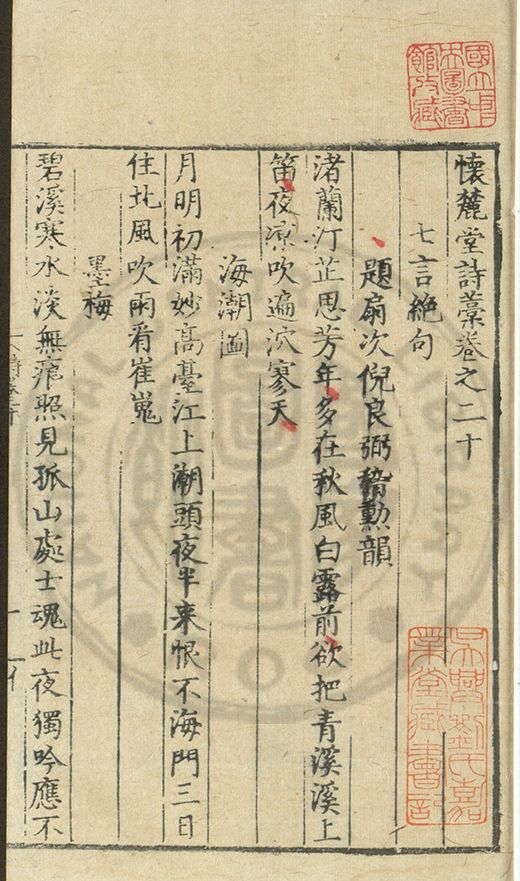 懷麓堂詩藁卷之二十
七言絕句
題扇次倪良弼稽勳韻
渚蘭汀芷思芳年多在秋風白露前欲把青溪溪上
笛夜凉吹遍泬寥天
海潮圖
月明初滿妙高臺江上潮頭夜半来恨不海門三日
住北風吹雨看崔嵬
墨梅
碧溪寒水淡無痕照見孤山處士魂此夜獨吟應不
國立中央圖書館收藏
吳興劉氏嘉業堂藏書記